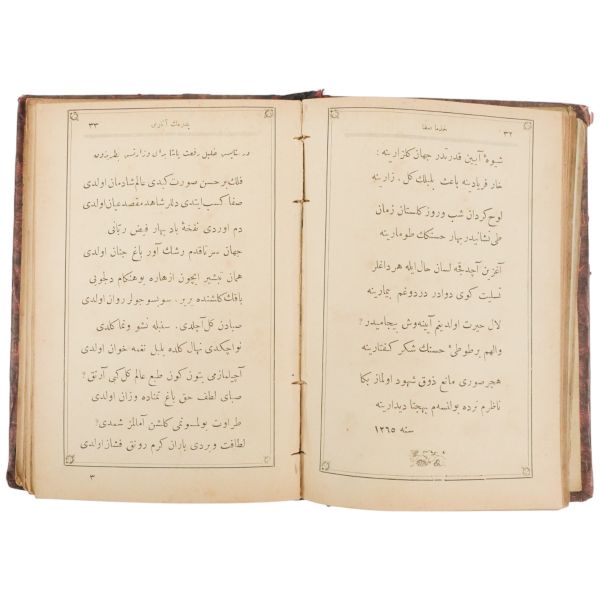 ٣٢
خذما صفا
شیوهٔ آیین قدرتدر جهان کلزارینه؛
خار فریادینه باعث بلبلك کل، زارینه
لوح کردان شب وروز کلستان زمان
طی نشانیدر بهار حسنك طومارینه
آغزین آچدقجه لسان حال ایله هر داغلر
تسلیت کوی دوادر دردوغم بیمارینه
لال حیرت اولدیغم آیینه‌وش بیجامیدر؟
والهم بر طوطیٔ حسنك شکر کفتارینه
هجر صوری مانع ذوق شهود اولماز بکا
ناظرم نرده بولانسه‌م بهجتا دیدارینه
سنه ١٢٦٥
پدرمك آثاری
٣٣
خلیل رفعت پاشا
فلك بر حسن صورت کیدی عالم شادمان اولدی
صفا کسب ایتدی دللر شاهد مقصد عیان اولدی
دم اوردی نفخهٔ باد بهار فیض ربانی
جهان سرتاقدم رشك آور باغ جنان اولدی
همان تبشیر ایچون ازهاره بوهنکام دلجویی
یاقك کلشنده بربر، سوبسو جولر روان اولدی
صبادن کل آچلدی، سنبله نشو ونما کلدی
نواچکدی نهال کلده بلبل نغمه‌خوان اولدی
آچیلمازمی بتون کون طبع عالم کل کبی آرتق؟
صبای لطف حق باغ تمناده وزان اولدی
طراوت بولمسونمی کلشن آمالمز شمدی؟
لطافت ویردی باران کرم رونق فشان اولدی
٣